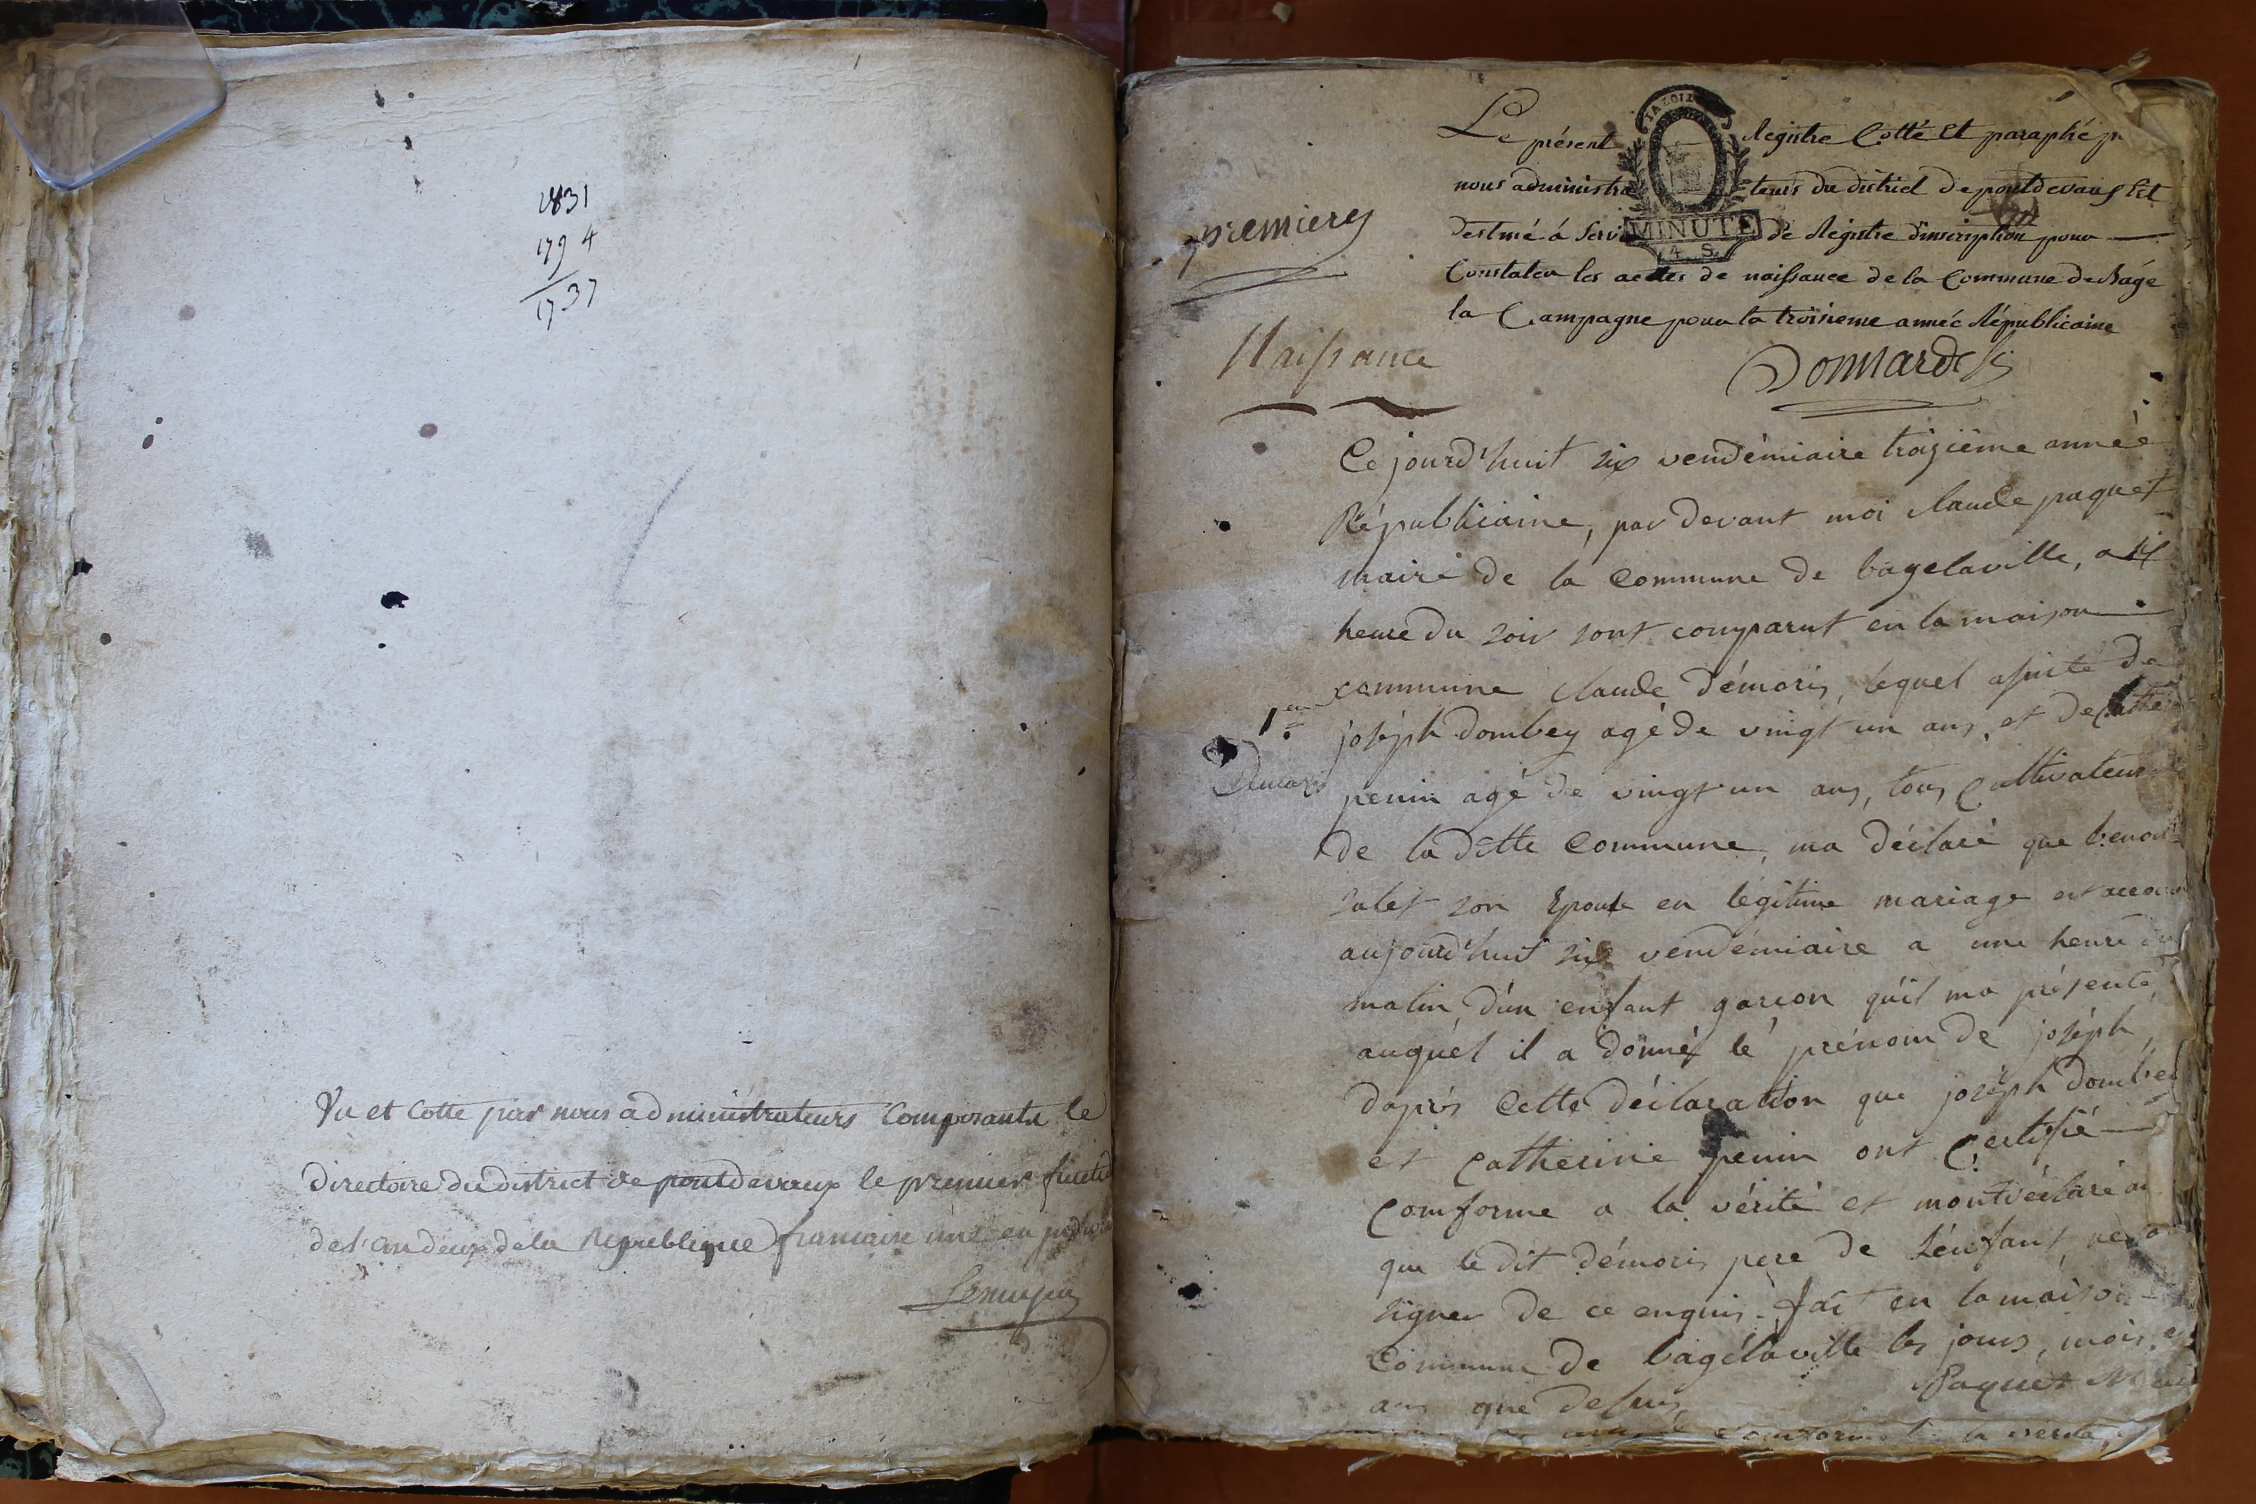 1831
1794
1737
Vu et Cotte par nous administrateurs Composants le
directoire du district de pontdevaux le premier
de l'an deux de la Republique francaise une
premieres
Le présent Registre Cotté Et paraphé
nous administrateurs du district de pontdevaux Est
destiné à servir de Registre d'inscription pour
Constater les actes de naissance de la Commune de Bagé
la Campagne pour la troisieme année Républicaine
MINUTE
4. S.
Naissance
Ce jourd'huit six vendémiaire troisième année
Républicaine, par devant moi claude paquet
maire de la Commune de bagelaville, a six
heure du soir sont comparut en la maison
commune claude démoris, léquel asisté de
1er
joséph dombey agé de vingt un ans, et de
Demoris
penin agé de vingt un ans, tous Cultivateurs
de la ditte Commune, ma déclaré que
salet son Epouse en légitime mariage est
aujourd'huit six vendémiaire a une heure du
matin, d'un enfant garçon qu'il ma présenté,
auquél il a donné lé prénom de joséph,
daprés Cette déclaration que joséph dombey
et Catherine penin ont Certifié
Comforme a la vérité et mont déclaré
que le dit démoris pere de l'énfant,
signer de ce enquis. fait en la maison
Commune de bagélaville les jours, mois, et
ans que desus
Paquet
comforme a la verité